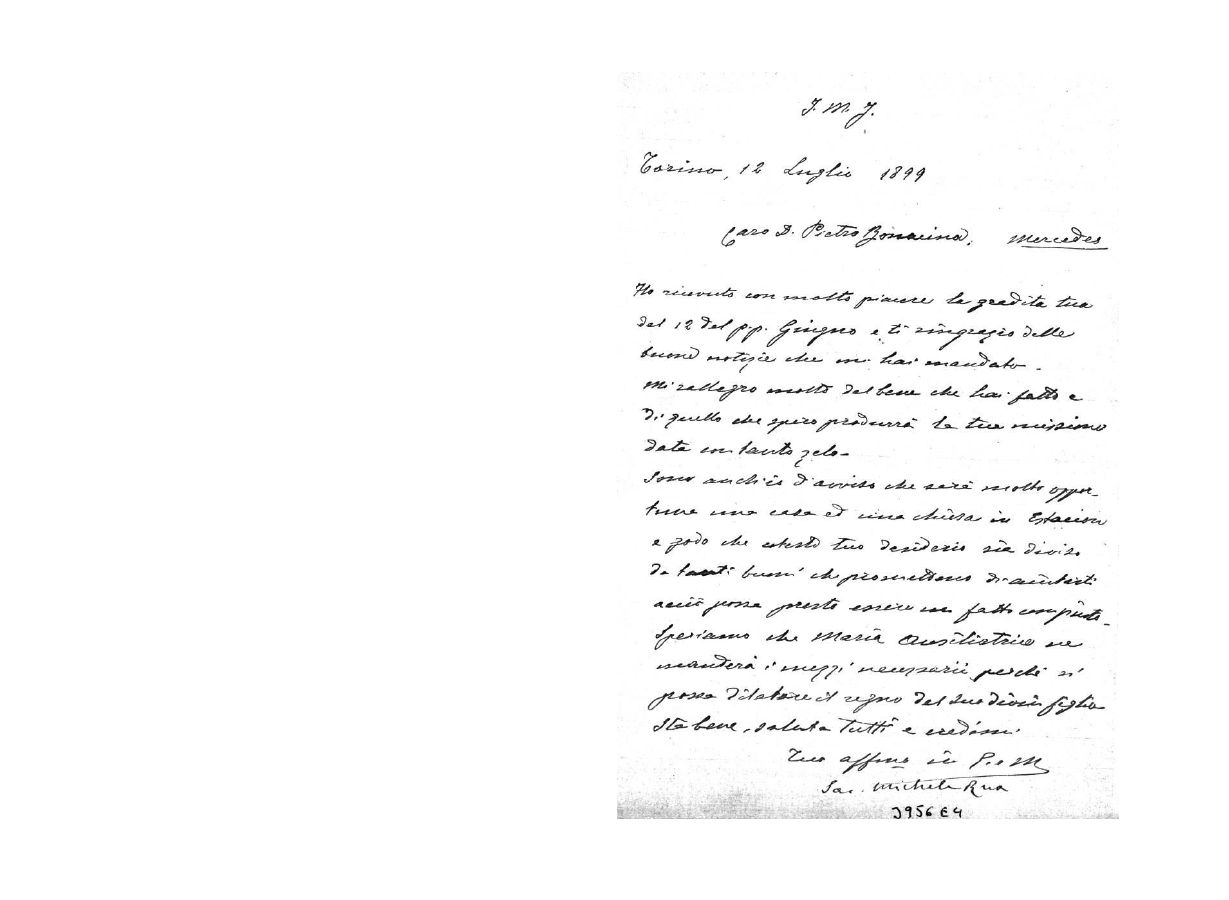 J. M. J.
Torino, 12 Luglio 1899
Caro D. Pietro Bonacina, Mercedes
Ho ricevuto con molto piacere la gradita tua
del 12 del p.p. Giugno e ti ringrazio delle
buone notizie che mi hai mandato.
Mi rallegro molto del bene che hai fatto e
di quello che spero produrrà la tua missione
data con tanto zelo.
Sono anch'io d'avviso che sarà molto oppor-
tuna una casa ed una chiesa in Estacion
e godo che cotesto tuo desiderio sia diviso
da tanti buoni che promettono di aiutarti
acciò possa presto essere un fatto compiuto.
Speriamo che Maria Ausiliatrice ne
manderà i mezzi necessarii perchè si
possa dilatare il regno del suo divin figlio
Sta bene, saluta tutti e credimi
Tuo affmo in G. e M.
Sac. Michele Rua
3956 E4